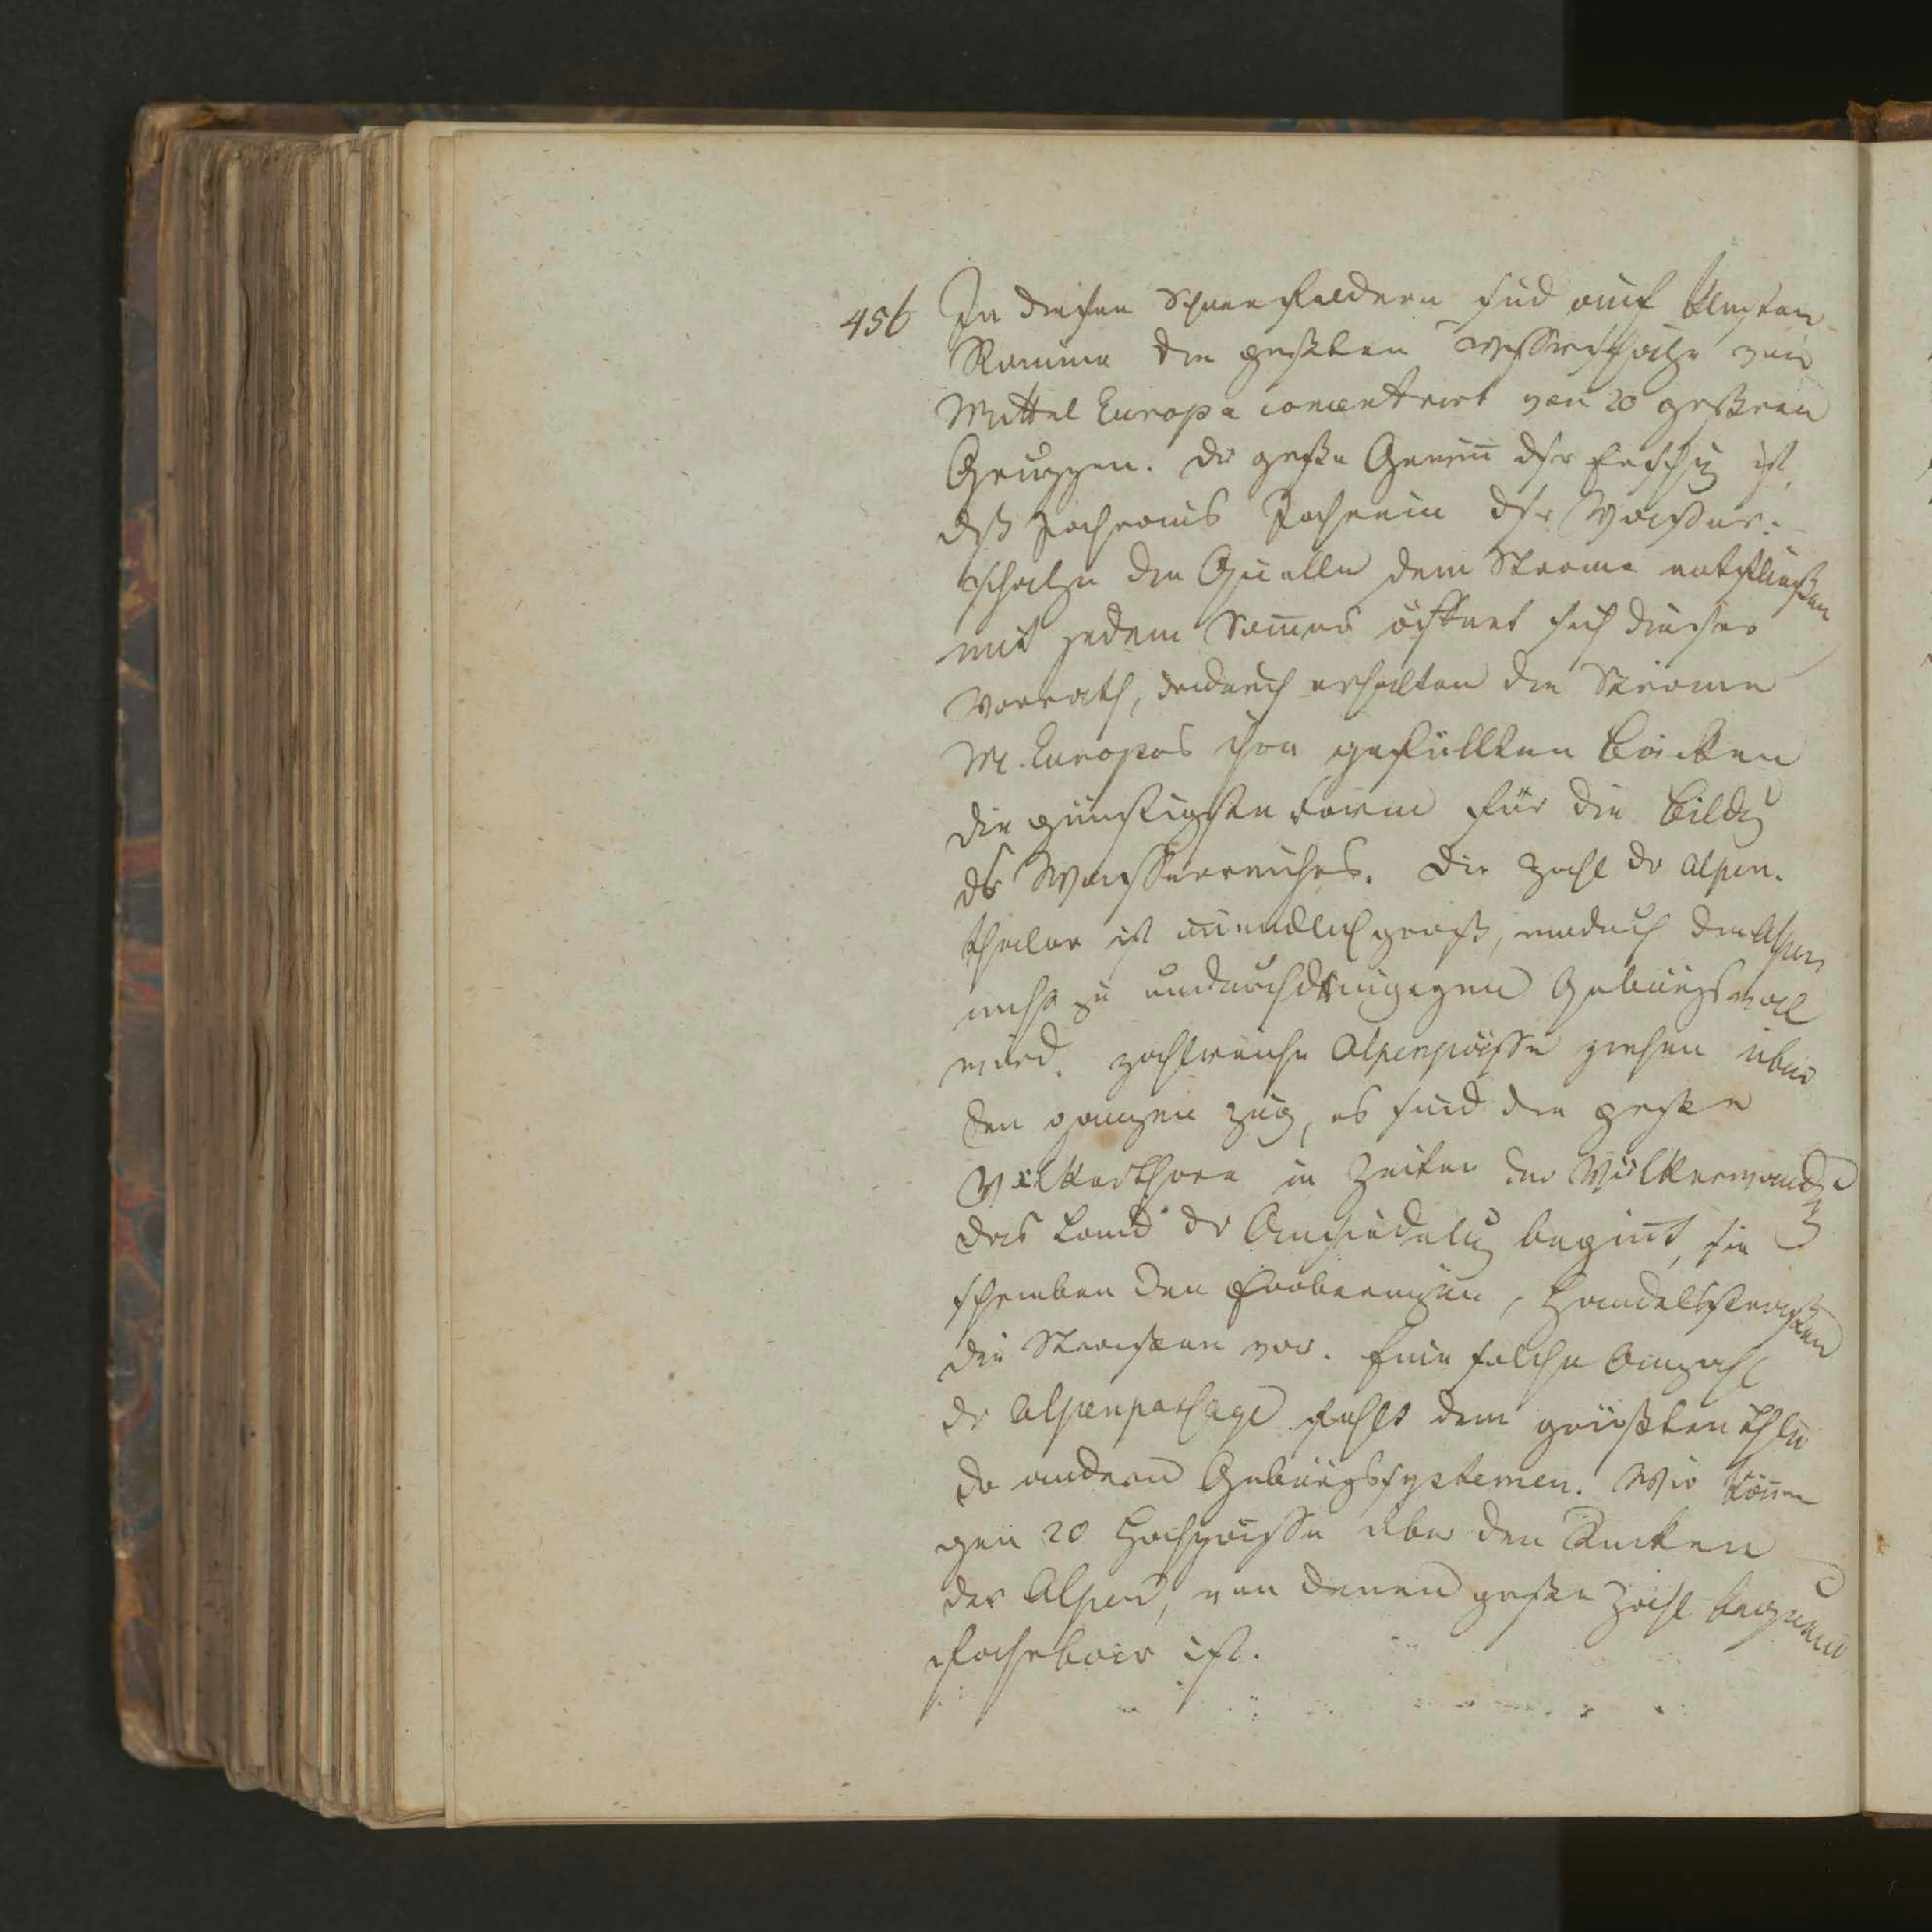 456 In diesen Schneefeldern sind auf kleinstem
Raume die größten Wasserschätze von
Mittel Europa concentrirt von 20 großen
Gruppen. Der große Gewinn dser ist,
dß Jahraus Jahrein dse Wasser-
schätze die Quelle dem Strome entfließen
mit jedem Somer öffnet sich dieser
Vorrath, dadurch erhalten die Ströme
M. Europas ihre gefüllten Becken
die günstigste Form für die Bildg
ds Wasserreiches. Die Zahl dr Alpen-
thäler ist unendlich groß, wodurch die Alpen
nicht zu undurchdringigen Gebürgswall
wird. Zahlreiche Alpenpässe ziehen über
den ganzen Zug, es sind die große
Völkerthore in Zeiten der Völkerwandg
das Land dr Ansiedelug begint, sie
schreiben den Eroberungen, Handelsstraßen
die Straßen vor. Eine solche Anzahl
dr Alpenpassage fehlt dem größten Thle
dr andern Gebürgssystemen. Wir kennen
gen 20 Hochpässe über den Rücken
der Alpen, von denen große Zahl bequem
fahrbar ist.